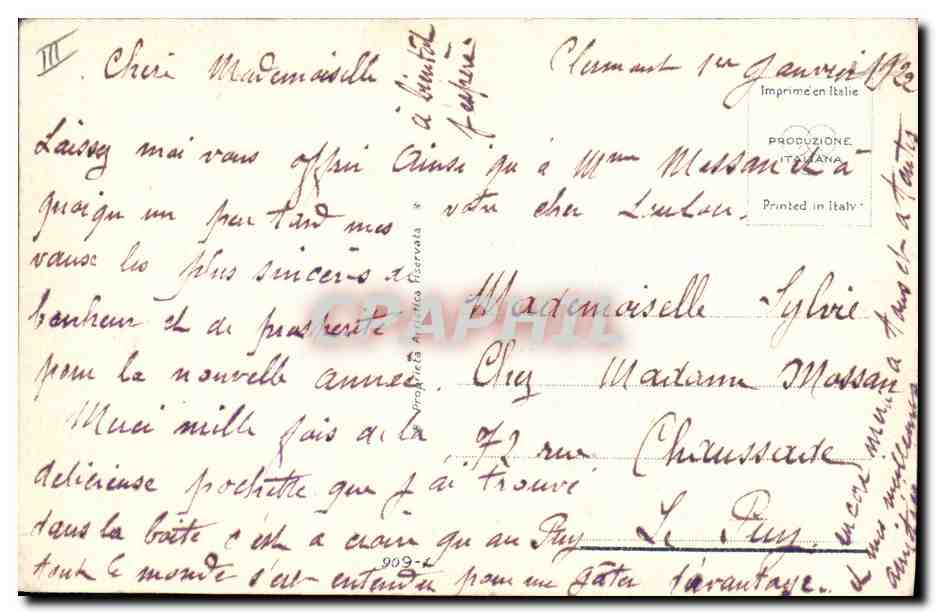 III
Clermont 1er Janvier 1922
Chère Mademoiselle
Laissez moi vous offrir ainsi qu'à Mme Massan et à
quoiqu un peu tard mes votre cher Loulou.
vœux les plus sincères de
bonheur et de prosperité
pour la nouvelle année.
Merci mille fois de la
delicieuse pochette que j'ai trouvé
dans la boîte c'est a croire qu au Puy
tout le monde s'est entendu pour me gâter davantage.
encore merci a tous et a toutes
et mes meilleures
amitiés
à bientôt
j'espère
Mademoiselle Sylvie
Chez Madame Massan
72 rue Chaussade
Le Puy
Imprimé en Italie
PRODUZIONE
ITALIANA
Printed in Italy
Proprietà Artistica Riservata
909-1
CPAPHIL